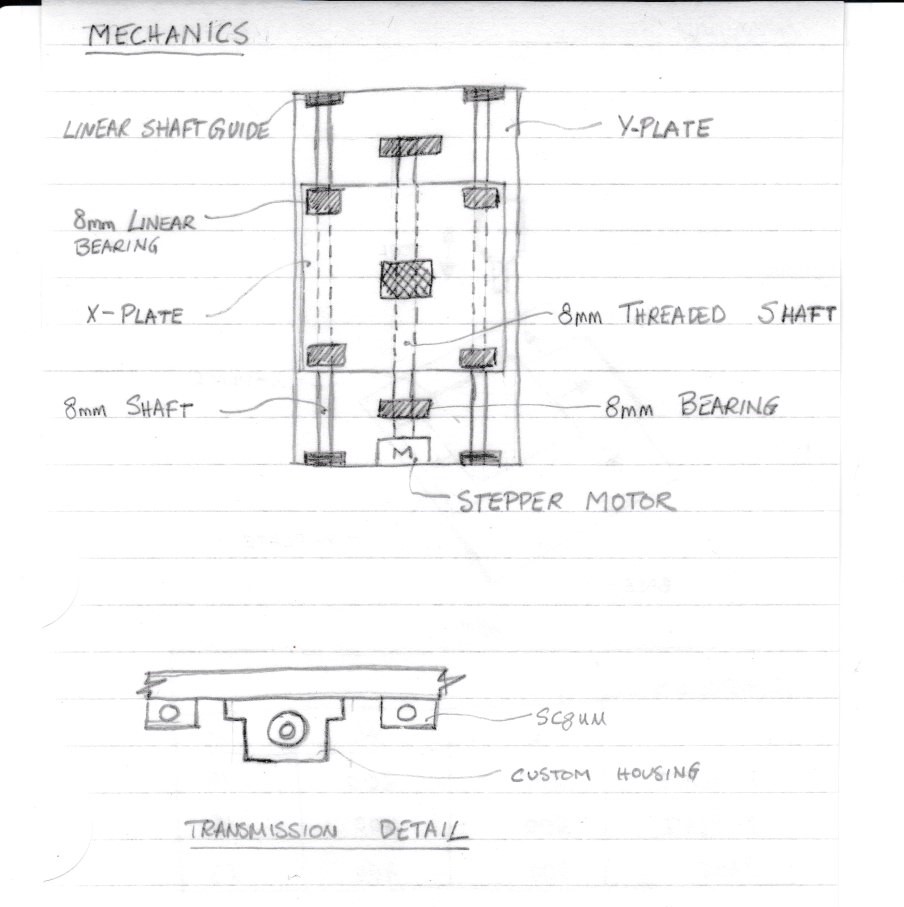 MECHANICS
LINEAR SHAFT GUIDE
Y-PLATE
8mm LINEAR
BEARING
X-PLATE
8mm THREADED SHAFT
8mm SHAFT
8mm BEARING
M
STEPPER MOTOR
SC8UU
CUSTOM HOUSING
TRANSMISSION DETAIL